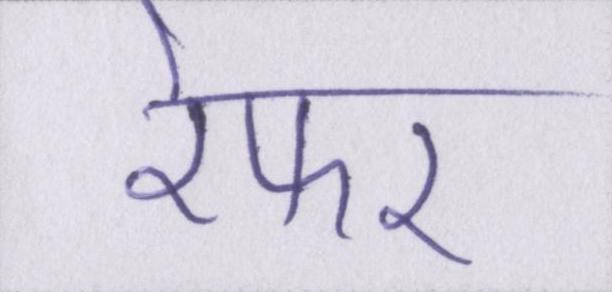 रेफर